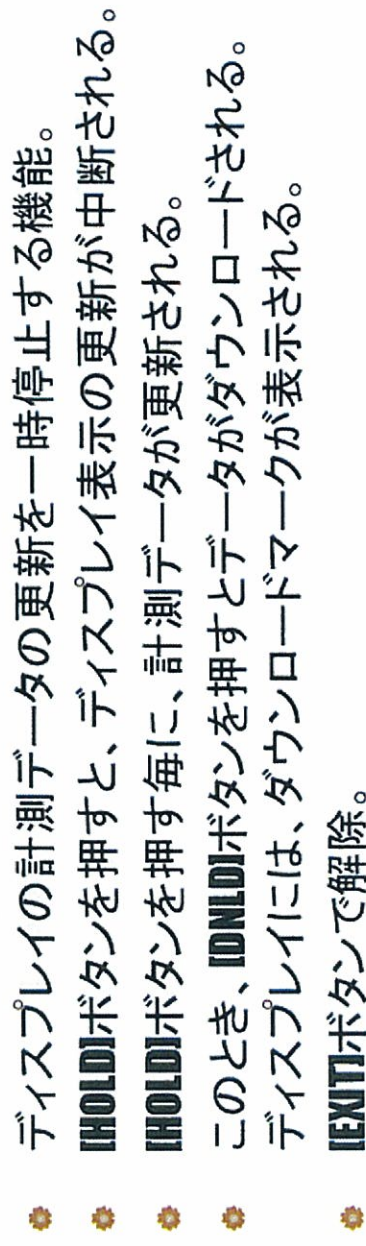 ディスプレイの計測データの更新を一時停止する機能。
[HOLD]ボタンを押すと、ディスプレイ表示の更新が中断される。
[HOLD]ボタンを押す毎に、計測データが更新される。
このとき、[DNLD]ボタンを押すとデータがダウンロードされる。
ディスプレイには、ダウンロードマークが表示される。
[EXIT]ボタンで解除。